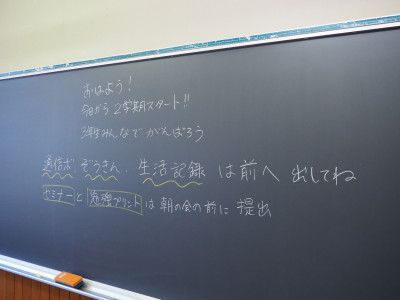 おはよう!
今日から 2学期スタート!!
みんなで がんばろう
通信ボ ぞうきん 生活記録 は前へ 出してね
セミナーと 勉強プリント は 朝の会の前に 提出